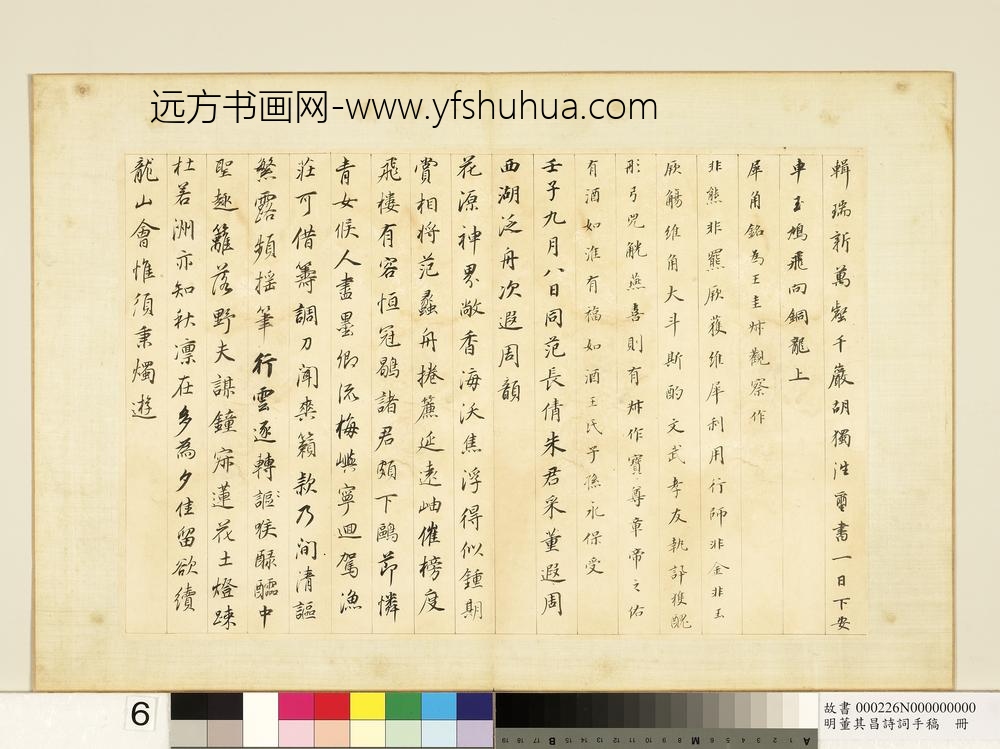 远方书画网-www.yfshuhua.com
輯瑞新萬壑千巖胡獨渋璽書一日下安
車玉鳩飛向銅龍上
犀角銘為王圭叔觀察作
非熊非羆厥獲維犀利用行師非金非玉
厥觴維角大斗斯酌文武孝友執訊獲醜
彤弓兕觥燕喜則有叔作寶尊章帝之佑
有酒如淮有福如酒王氏子孫永保受
壬子九月八日同范長倩朱君采董遐周
西湖泛舟次遐周韻
花源神界敞香海沃焦浮得似鍾期
賞相將范蠡舟捲簾延遠岫催榜度
飛樓有容恒冠鶡諸君頗下鷗節憐
青女候人盡墨卿流梅嶼寧迴駕漁
莊可借籌調刀聞爽籟款乃間清謳
繁露頻搖筆行雲逐轉謳喉醁醽中
聖趣籬落野夫謀鐘寂蓮花土燈疎
杜若洲亦知秋凛在多為夕佳留欲續
龍山會惟須秉燭遊
6
故書 000226N000000000
明董其昌詩詞手稿 冊